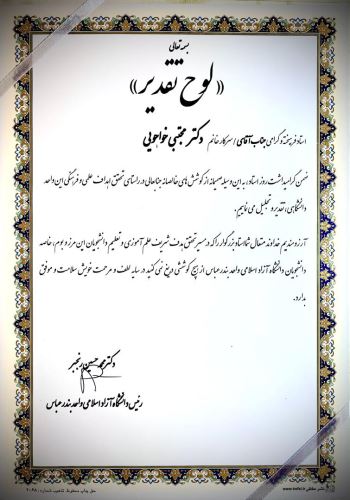 بسمه تعالی
«لوح تقدیر»
استاد فرهیخته و گرامی جناب آقای / سرکار خانم دکتر مجتبی خواجویی
ضمن گرامیداشت روز استاد، به این وسیله صمیمانه از کوشش های خالصانه جنابعالی در راستای تحقق اهداف علمی و فرهنگی این واحد
دانشگاهی، تقدیر و تجلیل می نماییم.
آرزومندیم خداوند متعال شما استاد بزرگوار را که در مسیر تحقق هدف شریف علم آموزی و تعلیم دانشجویان این مرز و بوم، خاصه
دانشجویان دانشگاه آزاد اسلامی واحد بندرعباس از هیچ کوششی دریغ نمی کنید در سایه لطف و مرحمت خویش سلامت و موفق
بدارد.
دکتر محمد حسین رنجبر
رئیس دانشگاه آزاد اسلامی واحد بندرعباس
حق چاپ محفوظ تذهیب شماره: ۲۰۶۸